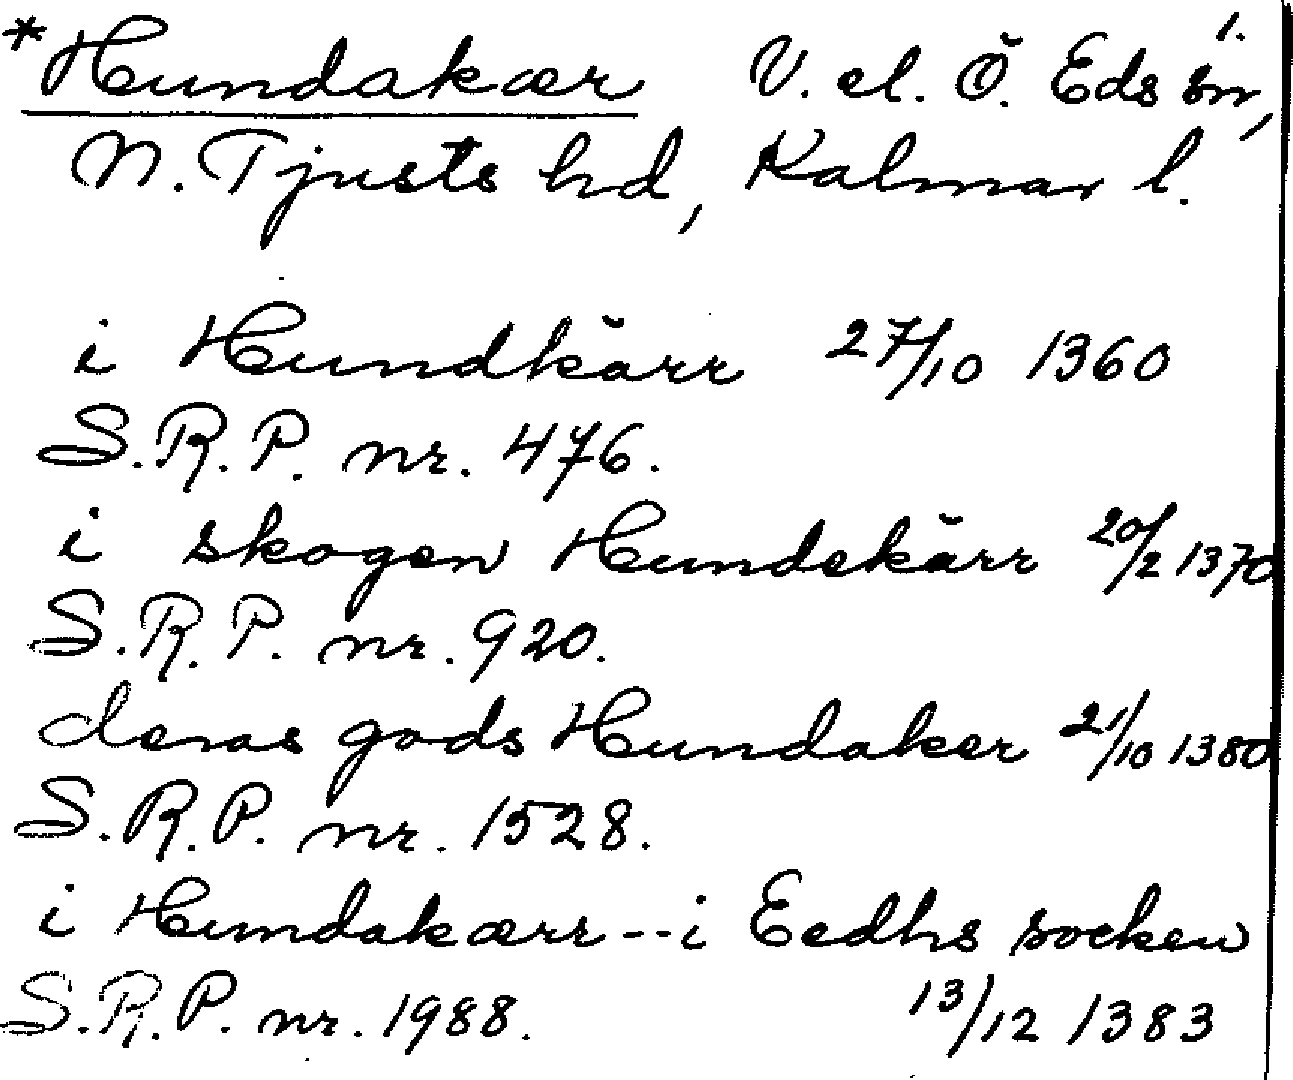 1.
*Hundakær V. el. Ö. Eds sn,
N. Tjusts hd, Kalmar l.
i Hundkärr 27/10 1360
S.R.P. nr. 476.
i skogen Hundekärr 20/2 1370
S.R.P. nr. 920.
deras gods Hundaker 21/10 1380
S.R.P. nr. 1528.
i Hundakærr--i Eedhs socken
S.R.P. nr. 1988. 13/12 1383